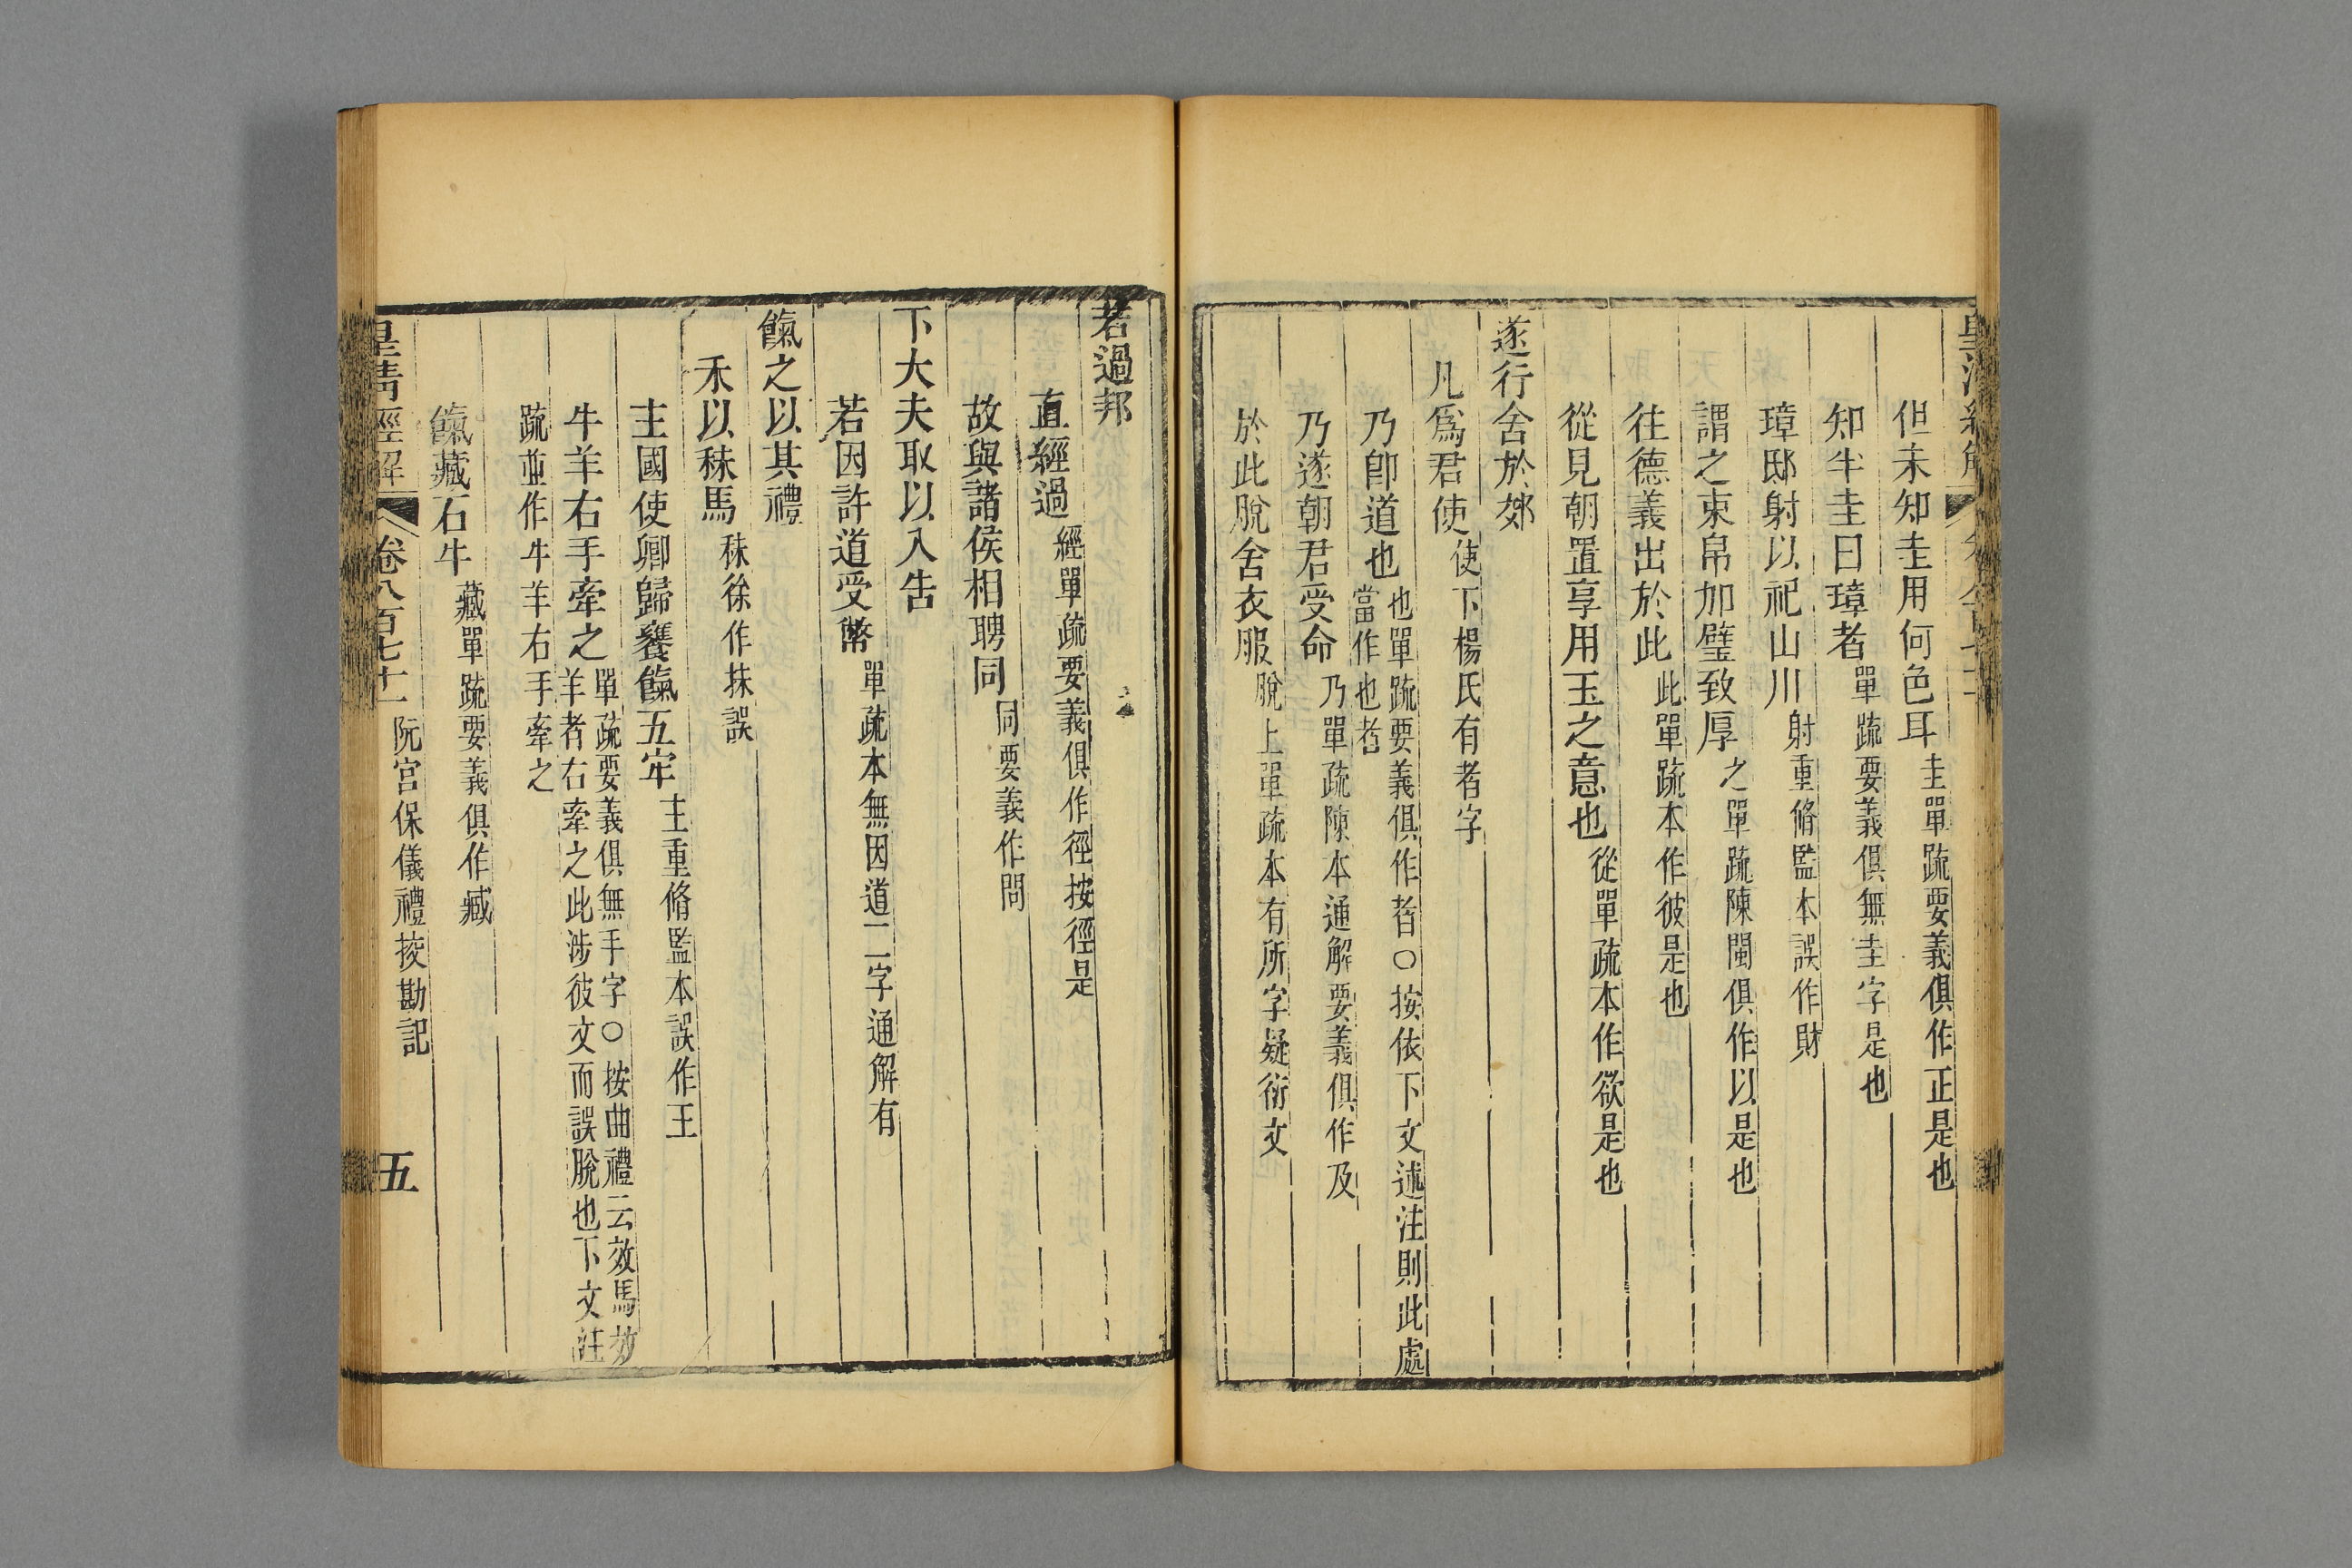 但未知圭用何色耳 圭單疏要義俱作正是也
知半圭曰璋者 單疏要義俱無圭字是也
璋邸射以祀山川 射重脩監本誤作財
謂之束帛加璧致厚 之單疏陳閩俱作以是也
往德義出於此 此單疏本作彼是也
從見朝置享用玉之意也 從單疏本作欲是也
遂行舍於郊
凡爲君使 使下楊氏有者字
乃卽道也 也單疏要義俱作者○按依下文述注則此處
當作也者
乃遂朝君受命 乃單疏陳本通解要義俱作及
於此脫舍衣服 脫上單疏本有所字疑衍文
若過邦
直經過 經單疏要義俱作徑按徑是
故與諸侯相聘同 同要義作問
下大夫取以入告
若因許道受幣 單疏本無因道二字通解有
餼之以其禮
禾以秣馬 秣徐作抹誤
主國使卿歸饔餼五牢 主重脩監本誤作王
牛羊右手牽之 單疏要義俱無手字○按曲禮云效馬效
羊者右牽之此涉彼文而誤脫也下文註
疏並作牛羊右手牽之
餼藏石牛 藏單疏要義俱作臧
皇清經解 卷八百七十一 阮宮保儀禮挍勘記 五